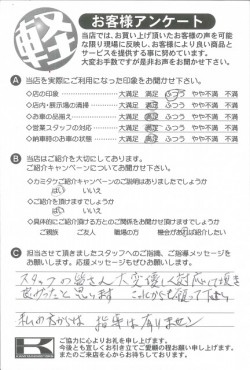 軽
お客様アンケート
当店では、お買い上げ頂いたお客様の声を可能
な限り現場に反映し、お客様により良い商品と
サービスを提供する事に努めています。
大変お手数ですが是非お声をお聞かせ下さい。
A 当店を実際にご利用になった印象をお聞かせ下さい。
◇店の印象 大満足 満足 ふつう やや不満 不満
◇店内・展示場の清掃 大満足 満足 ふつう やや不満 不満
◇お車の品揃え 大満足 満足 ふつう やや不満 不満
◇営業スタッフの対応 大満足 満足 ふつう やや不満 不満
◇納車時のお車の状態 大満足 満足 ふつう やや不満 不満
B 当店はご紹介を大切にしております。
ご紹介キャンペーンについてお聞かせ下さい。
◇カミタケご紹介キャンペーンのご説明はありましたでしょうか
はい いいえ
◇ご紹介を頂けますでしょうか
はい いいえ
◇具体的にご紹介頂ける方とのご関係をお聞かせ頂けますでしょうか
ご親族 ご友人 職場の方 機会があれば紹介したい
C 担当させて頂きましたスタッフへのご指摘、ご指導メッセージを
お願いします。応援メッセージもぜひお願いします。
スタッフの皆さん 大変優しく対応して頂き
良かったと思います これからも頑って下さい
私の方からは 指導は有りません
K
ご協力に心よりお礼を申し上げます。
今後とも宜しくお引き立てご愛顧の程お願い申し上げます。
またのご来店を心からお待ちしております。